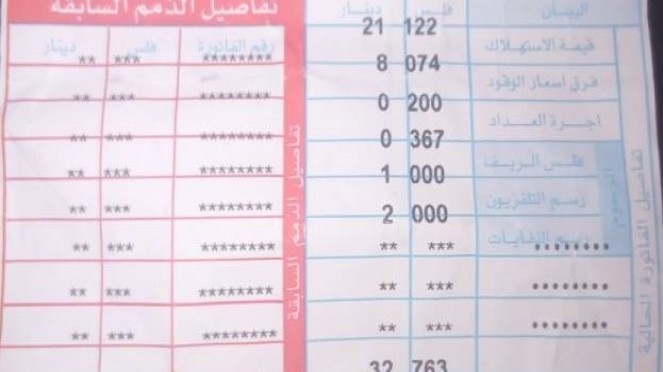 البيان فلس دينار
قيمة الاستهلاك 122 21
فرق اسعار الوقود 074 8
اجرة العداد 200 0
فلس الريف 367 0
رسم التلفزيون 000 1
رسم النفايات 000 2
******** *** **
******** *** **
******** *** **
763 32
الرسوم
تفاصيل الفاتورة الحالية
تفاصيل الذمم السابقة
رقم الفاتورة فلس دينار
******** *** **
******** *** **
******** *** **
******** *** **
******** *** **
******** *** **
******** *** **
******** *** **
تفاصيل الذمم السابقة